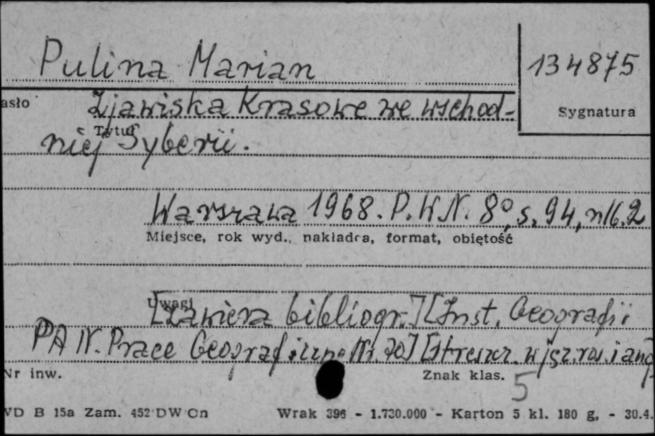 Pulina Marian
134875
asło
Zjawiska Krasowe we wschod-
Sygnatura
Tytuł
niej Syberii.
Warszawa 1968. P.W.N. 8°, s. 94, nlb. 2
Miejsce, rok wyd., nakładca, format, objętość
Uwagi
[Zawiera bibliogr.] [Inst. Geografii
PAN. Prace Geograficzne Nr 70] [Streszcz. w jęz. ros. i ang
Nr inw.
Znak klas.
5
VD B 15a Zam. 452 DW Cn
Wrak 396 - 1.730.000 - Karton 5 kl. 180 g. - 30.4.